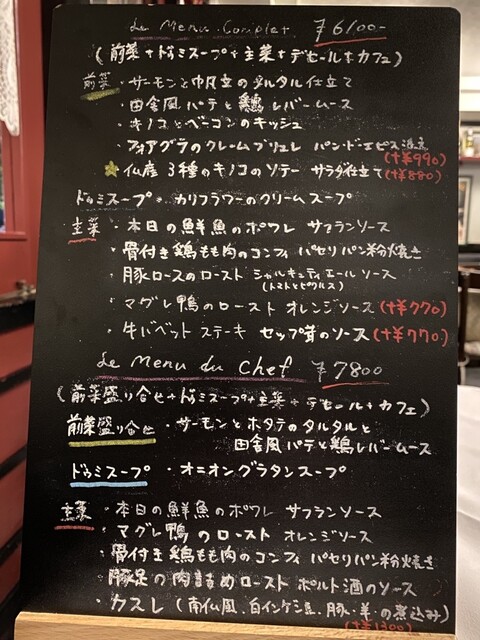 Le Menu Complet ¥6100-
(前菜+ドゥミスープ+主菜+デセール+カフェ)
前菜 ・サーモンと帆立のタルタル仕立て
・田舎風パテと鶏レバームース
・キノコとベーコンのキッシュ
・フォアグラのクレームブリュレ パン・ド・エピス添え (+¥990)
☆仏産3種のキノコのソテー サラダ仕立て (+¥880)
ドゥミスープ ・カリフラワーのクリームスープ
主菜 ・本日の鮮魚のポワレ サフランソース
・骨付き鶏もも肉のコンフィ パセリパン粉焼き
・豚ロースのロースト シャルキュティエールソース
(トマトとピクルス)
・マグレ鴨のロースト オレンジソース (+¥770)
・牛バベットステーキ セップ茸のソース (+¥770)
Le Menu du Chef ¥7800
(前菜盛り合せ+ドゥミスープ+主菜+デセール+カフェ)
前菜盛り合せ ・サーモンとホタテのタルタルと
田舎風パテと鶏レバームース
ドゥミスープ ・オニオングラタンスープ
主菜 ・本日の鮮魚のポワレ サフランソース
・マグレ鴨のロースト オレンジソース
・骨付き鶏もも肉のコンフィ パセリパン粉焼き
・豚足の肉詰めロースト ポルト酒のソース
・カスレ (南仏風、白インゲン豆、豚・羊の煮込み)
(+¥1300)